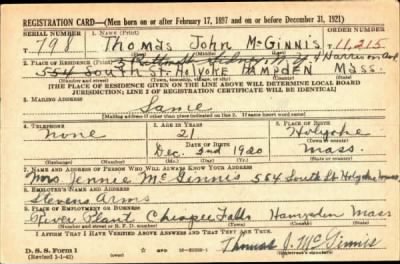 REGISTRATION CARD—(Men born on or after February 17, 1897 and on or before December 31, 1921)
SERIAL NUMBER 1. NAME (Print) ORDER NUMBER
T 798 Thomas John McGinnis T 11,215
2. PLACE OF RESIDENCE (Print) Harrison Ave
554 South St. Holyoke Hampden Mass.
(Town, township, village, or city) (County) (State)
[THE PLACE OF RESIDENCE GIVEN ON THE LINE ABOVE WILL DETERMINE LOCAL BOARD
JURISDICTION; LINE 2 OF REGISTRATION CERTIFICATE WILL BE IDENTICAL]
3. MAILING ADDRESS
Same
[Mailing address if other than place indicated on line 2. If same insert word same]
4. TELEPHONE 5. AGE IN YEARS 6. PLACE OF BIRTH
none 21 Holyoke
DATE OF BIRTH (Town or county)
Dec. 2nd 1920 Mass.
(Exchange) (Number) (Mo.) (Day) (Yr.) (State or country)
7. NAME AND ADDRESS OF PERSON WHO WILL ALWAYS KNOW YOUR ADDRESS
Mrs Jennie McGinnis 554 South St Holyoke Mass.
8. EMPLOYER'S NAME AND ADDRESS
Stevens Arms
9. PLACE OF EMPLOYMENT OR BUSINESS
River Plant Chicopee Falls Hampden Mass
(Number and street or R. F. D. number) (Town) (County) (State)
I AFFIRM THAT I HAVE VERIFIED ABOVE ANSWERS AND THAT THEY ARE TRUE.
D. S. S. Form 1
(Revised 1-1-42) (over)
Thomas J. McGinnis